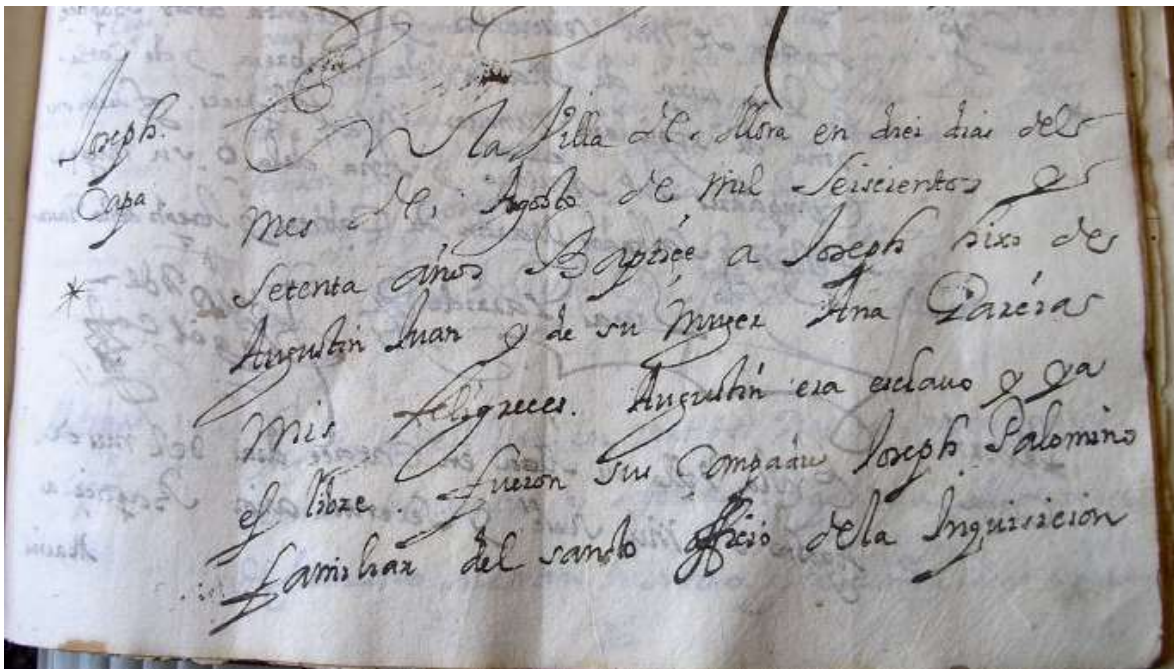 Joseph.
Capa
En la Villa de Mora en diei dias del
mes de Agosto de mil seiscientos y
setenta años Baptice a Joseph hixo de
Augustin Juan y de su Muger Ana Paréras
mis feligreces. Augustin era esclavo y ya
es libre. fueron sus Compadres Joseph Palomino
familiar del sancto officio dela Inquisicion